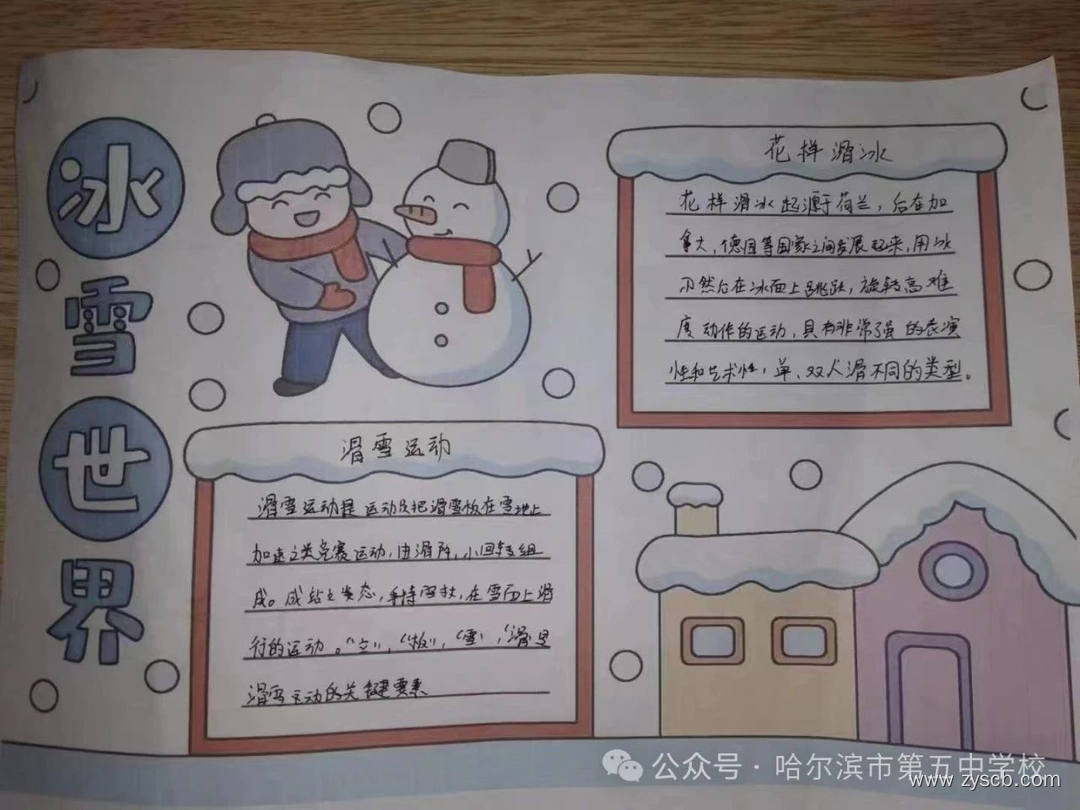 冰雪世界
花样滑冰
花样滑冰起源于荷兰，后在加
拿大，德国等国家之间发展起来，用冰
刀然后在冰面上跳跃，旋转高难
度动作的运动，具有非常强的表演
性和艺术性，单、双人滑不同的类型。
滑雪运动
滑雪运动是运动员把滑雪板在雪地上
加速之类竞赛运动，由滑降，小回转组
成。成站立姿态，手持雪杖，在雪面上滑
行的运动。“立”，“板”，“雪”，“滑”是
滑雪运动的关键要素
公众号·哈尔滨市第五中学校
www.zyscb.com